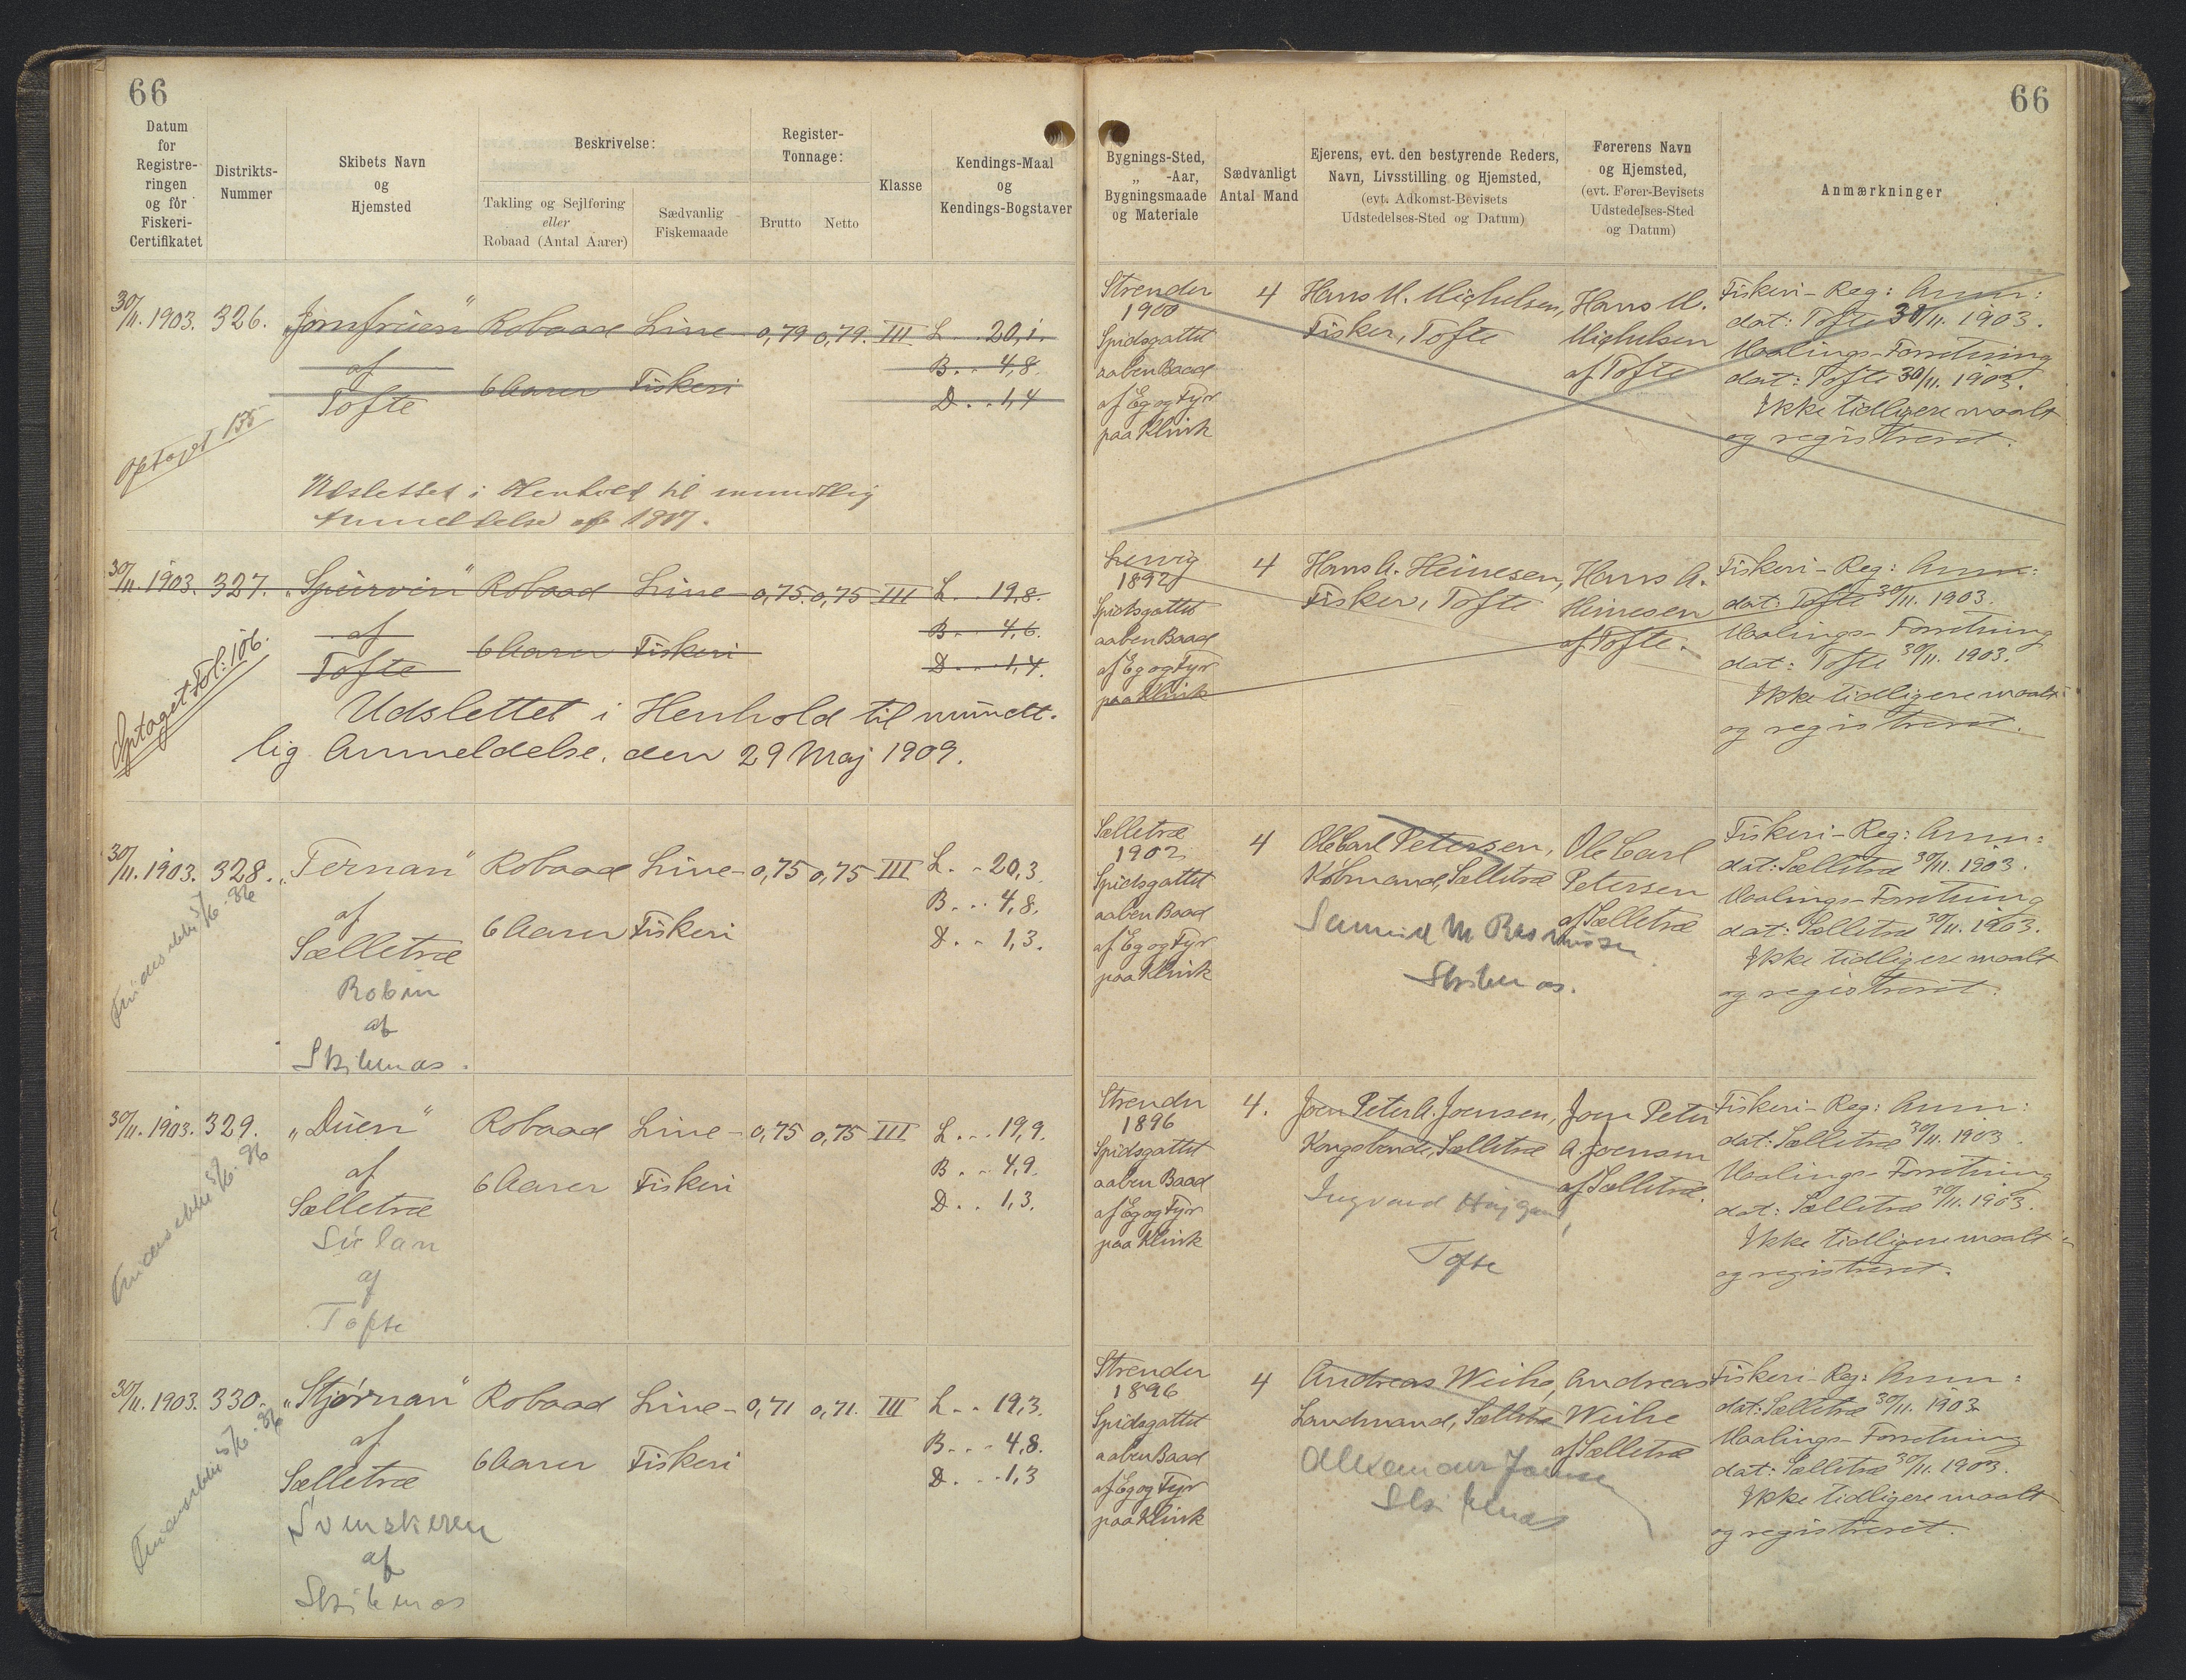 66
66
Datum
for
Registre-
ringen
og för
Fiskeri-
Certifikatet
Distrikts-
Nummer
Skibets Navn
og
Hjemsted
Beskrivelse:
Takling og Sejlføring
eller
Robaad (Antal Aarer)
Sædvanlig
Fiskemaade
Register-
Tonnage:
Brutto
Netto
Klasse
Kendings-Maal
og
Kendings-Bogstaver
Bygnings-Sted,
„ -Aar,
Bygningsmaade
og Materiale
Sædvanligt
Antal Mand
Ejerens, evt. den bestyrende Reders,
Navn, Livsstilling og Hjemsted,
(evt. Adkomst-Bevisets
Udstedelses-Sted og Datum)
Førerens Navn
og Hjemsted,
(evt. Fører-Bevisets
Udstedelses-Sted
og Datum)
Anmærkninger
30/11. 1903. 326. „Jomfruen" Robaad Line- 0,79 0,79. III L. . . 20,1.
af B. . . 4,8.
Tofte 6 Aarer Fiskeri D. . . 1,4
Optaget 155
Udslettet i Henhold til mundtlig
Anmeldelse af 1907.
Strender
1900
Spidsgattet
aaben Baad
af Eg og Fyr
paa Klink
4
Hans M. Michelsen,
Fisker, Tofte
Hans M.
Michelsen
af Tofte
Fiskeri-Reg: Anm:
dat: Tofte 30/11. 1903.
Maalings-Forretning
dat: Tofte 30/11. 1903.
Ikke tidligere maalt
og registreret.
30/11. 1903. 327. „Spurvin" Robaad Line- 0,75. 0,75 III L. . . 19,8.
af B. . . 4,6.
Tofte 6 Aarer Fiskeri D. . . 1,4.
Optaget Fol: 106.
Udslettet i Henhold til mundt-
lig Anmeldelse. den 29 Maj 1909.
1892
Spidsgattet
aaben Baad
af Eg og Fyr
paa Klink
4
Hans A. Heinesen,
Fisker, Tofte
Hans A.
Heinesen
af Tofte.
Fiskeri-Reg: Anm:
dat: Tofte 30/11. 1903.
Maalings-Forretning
dat: Tofte 30/11. 1903.
Ikke tidligere maalt
og registreret.
30/11. 1903. 328. „Ternan" Robaad Line- 0,75 0,75 III L. . . 20,3
af B. . . 4,8.
Sælletræ 6 Aarer Fiskeri D. . . 1,3.
Robin
af
Skilenæs.
Findes ikke 5/6. 26
Sælletræ
1902
Spidsgattet
aaben Baad
af Eg og Fyr
paa Klink
4
Ole Carl Petersen,
Købmand, Sælletræ
M Rasmussen
Ole Carl
Petersen
af Sælletræ
Fiskeri-Reg: Anm:
dat: Sælletræ 30/11. 1903.
Maalings-Forretning
dat: Sælletræ 30/11. 1903.
Ikke tidligere maalt
og registreret.
30/11. 1903. 329. „Duen" Robaad Line- 0,75 0,75 III L. . . 19,9.
af B. . . 4,9.
Sælletræ 6 Aarer Fiskeri D. . . 1,3.
af
Tofte
Findes ikke 5/6. 26
Strender
1896
Spidsgattet
aaben Baad
af Eg og Fyr
paa Klink
4.
Joen Peter A. Joensen,
Kongsbonde, Sælletræ
Ingvard Højgaard,
Tofte
Joen Peter
A. Joensen
af Sælletræ.
Fiskeri-Reg: Anm:
dat: Sælletræ 30/11. 1903.
Maalings-Forretning
dat: Sælletræ 30/11. 1903.
Ikke tidligere maalt
og registreret.
30/11. 1903. 330. „Stjørnan" Robaad Line- 0,71 0,71. III L. . . 19,3.
af B. . . 4,8.
Sælletræ 6 Aarer Fiskeri D. . . 1,3
Svenskeren
af
Findes ikke 5/6. 26
Strender
1896
Spidsgattet
aaben Baad
af Eg og Fyr
paa Klink
4
Andreas Weihe,
Landmand, Sælletræ
Alexander Joensen
Andreas
Weihe
af Sælletræ
Fiskeri-Reg: Anm:
dat: Sælletræ 30/11. 1903
Maalings-Forretning
dat: Sælletræ 30/11. 1903.
Ikke tidligere maalt
og registreret.